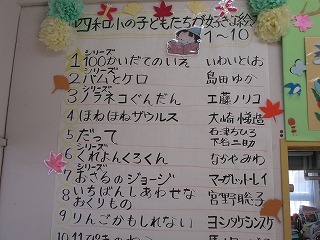 四和小の子どもたちが好きな絵本
1～10
1 シリーズ 100かいだてのいえ いわいとしお
2 シリーズ バムとケロ 島田ゆか
3 シリーズ ノラネコぐんだん 工藤ノリコ
4 ほねほねザウルス 大崎悌造
5 だって 石津ちひろ 下谷二助
6 シリーズ くれよんくろくん なかやみわ
7 シリーズ おさるのジョージ マーガレット・レイ
8 いちばんしあわせなおくりもの 宮野聡子
9 りんごかもしれない ヨシタケシンスケ
10 11ぴきのねこ